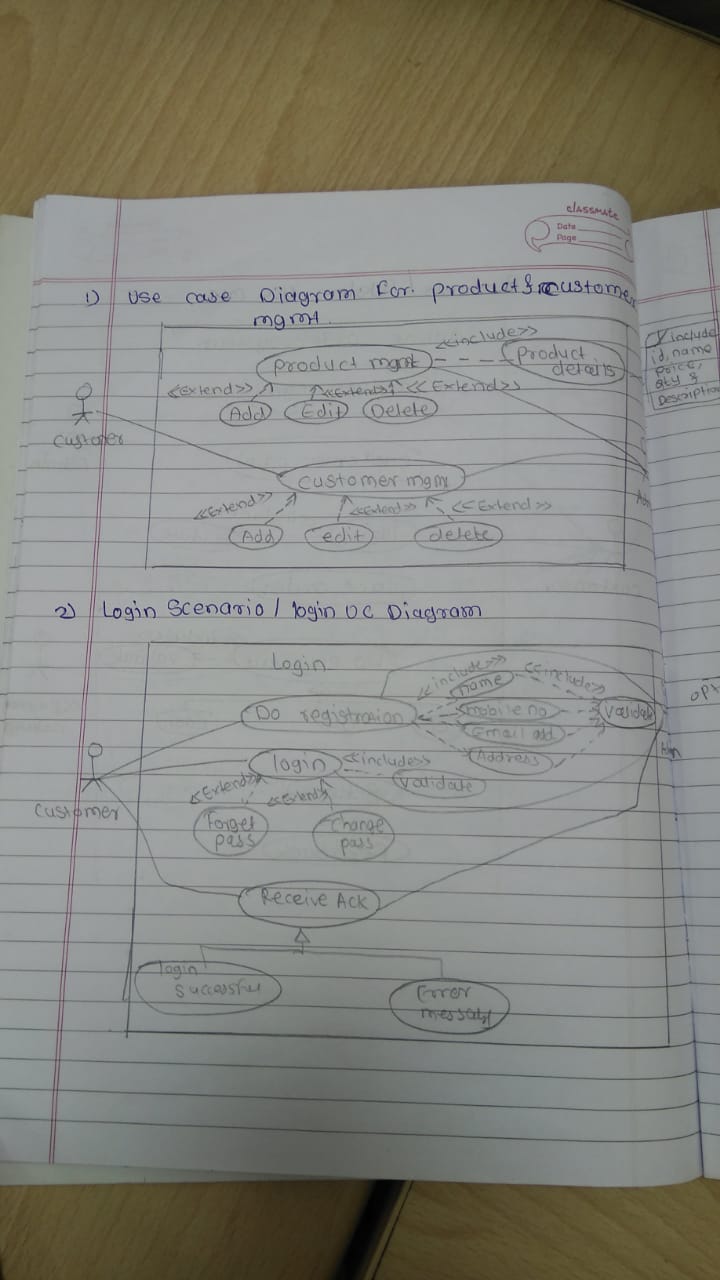 classmate
Date
Page
1) Use case Diagram For. product & customer
mgmt.
<<include>>
product mgmt
product
details
<<Extend>>
<<Extend>>
<<Extend>>
Add
Edit
Delete
customer
customer mgm
<<Extend>>
<<Extend>>
<<Extend>>
Add
edit
delete
include
id, name
price,
qty &
Description
2) Login Scenario / login UC Diagram
Login
<<include>>
<<include>>
name
Do registration
mobile no
validate
Email add
Address
login
<<include>>
validate
<<Extend>>
<<Extend>>
Forget
pass
change
pass
customer
Receive Ack
login
successful
Error
message